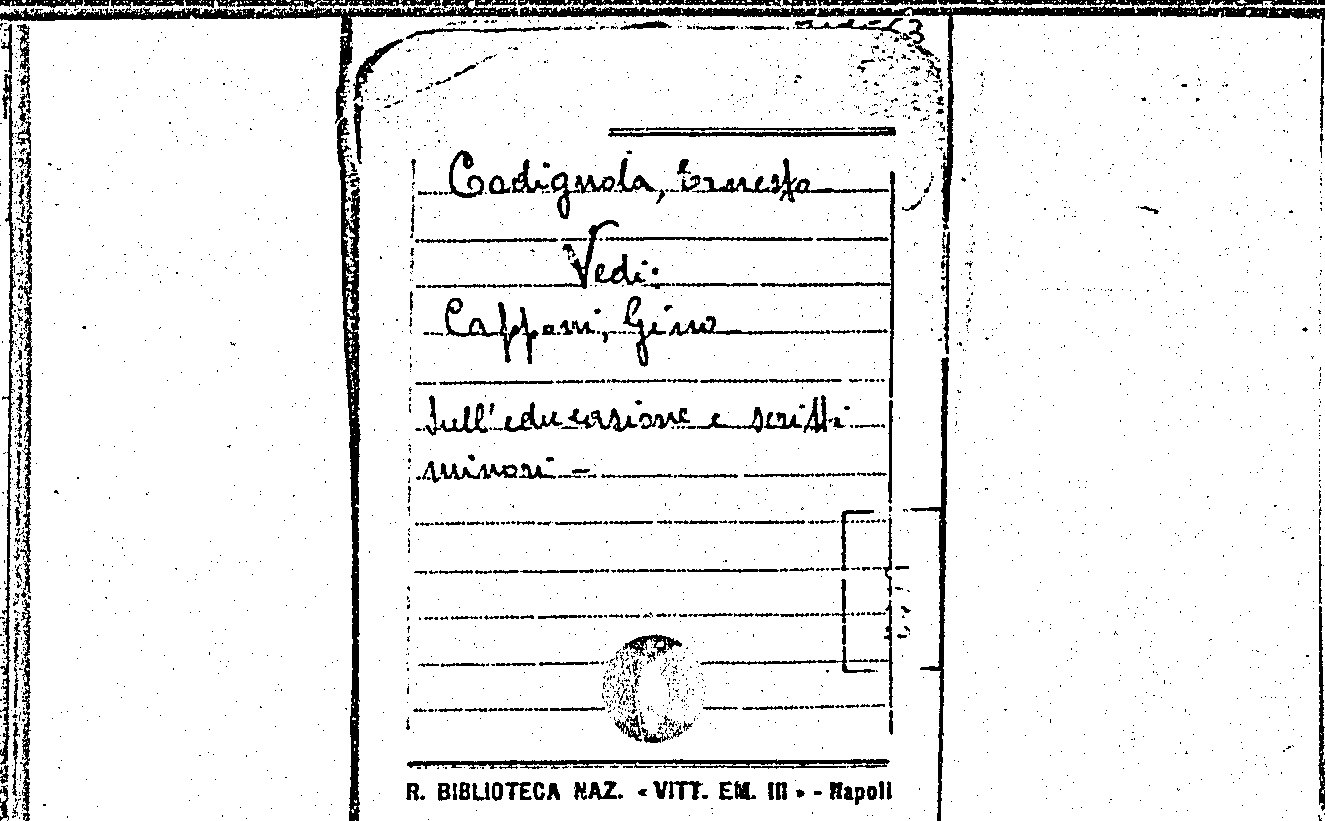 Codignola, Ernesto
Vedi:
Capponi, Gino
Sull'educazione e scritti
minori -
R. BIBLIOTECA NAZ. « VITT. EM. III » - Napoli